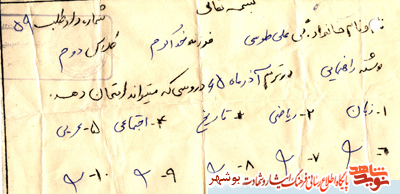 بسمه تعالی
شماره داوطلب ۵۹
نام و نام خانوادگی علی طوسی فرزند خداکرم کلاس دوم
رشته راهنمایی در ترم آذر ماه ۶۵ دروسی که میتواند امتحان دهد.
۱- زبان ۲- ریاضی ۳- تاریخ ۴- اجتماعی ۵- عربی
۶- ۷- ۸- ۹- ۱۰-
پایگاه اطلاع رسانی فرهنگ ایثار و شهادت بوشهر
نوید شاهد